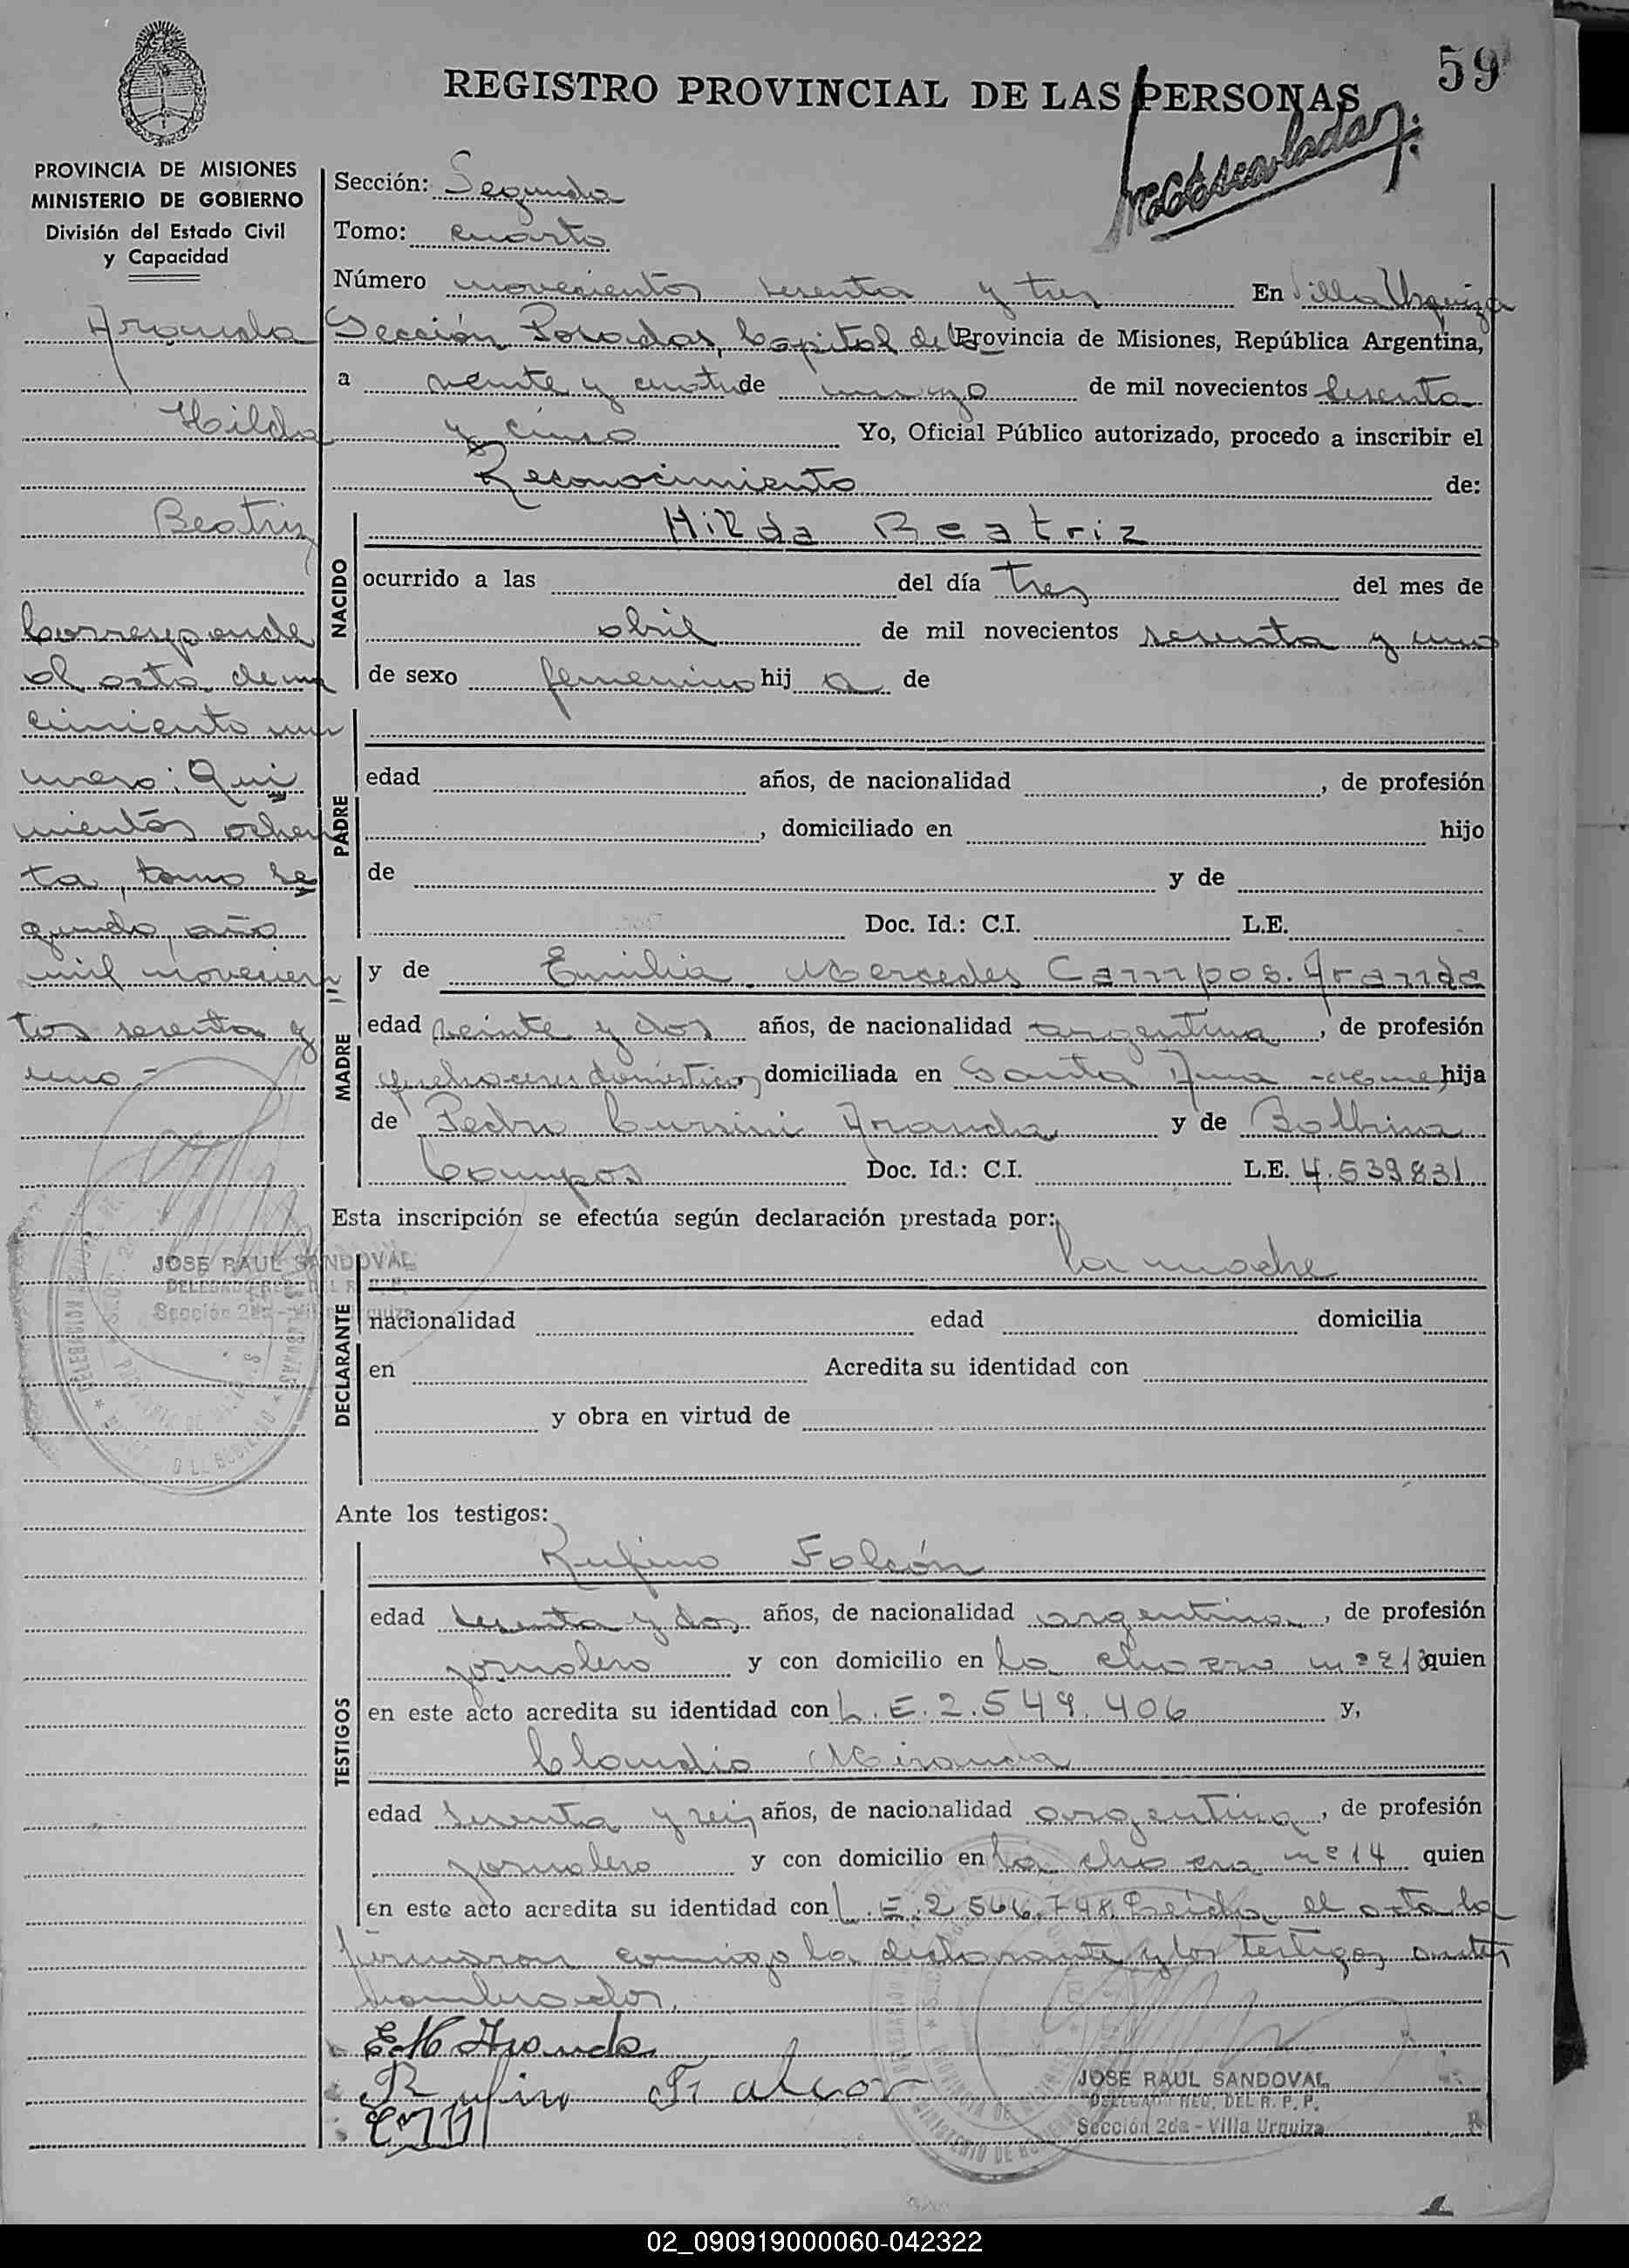 59
REGISTRO PROVINCIAL DE LAS PERSONAS
PROVINCIA DE MISIONES
MINISTERIO DE GOBIERNO
División del Estado Civil
y Capacidad
Aranda
Hilda
Beatriz
Corresponde
al acta de na
cimiento nu
mero: Qui
nientos ochen
ta, tomo se
gundo, año
mil novecien
tos sesenta y
uno -
JOSE RAUL SANDOVAL
DELEGADO REG. DEL R. P. P.
Sección 2da - Villa Urquiza
Sección: Segunda
Tomo: cuarto
Número novecientos sesenta y tres En Villa Urquiza
Sección Posadas, Capital de la Provincia de Misiones, República Argentina,
a veinte y cuatro de mayo de mil novecientos sesenta
y cinco Yo, Oficial Público autorizado, procedo a inscribir el
Reconocimiento de:
NACIDO
Hilda Beatriz
ocurrido a las del día tres del mes de
abril de mil novecientos sesenta y uno
de sexo femenino hij a de
PADRE
edad años, de nacionalidad , de profesión
, domiciliado en hijo
de y de
Doc. Id.: C.I. L.E.
MADRE
y de Emilia Mercedes Campos. Aranda
edad veinte y dos años, de nacionalidad argentina, de profesión
quehaceres domésticos, domiciliada en Santa Ana hija
de Pedro Aranda y de Balbina
Campos Doc. Id.: C.I. L.E. 4.539831
Esta inscripción se efectúa según declaración prestada por:
la madre
DECLARANTE
nacionalidad edad domicilia
en Acredita su identidad con
y obra en virtud de
Ante los testigos:
TESTIGOS
Rufino Falcón
edad sesenta y dos años, de nacionalidad argentina, de profesión
jornalero y con domicilio en La chacra nº 213 quien
en este acto acredita su identidad con L.E. 2.549.406 y,
Claudio Miranda
edad sesenta y seis años, de nacionalidad argentina, de profesión
jornalero y con domicilio en La chacra nº 14 quien
en este acto acredita su identidad con L.E. 2.566.748. Leída el acta la
firmaron conmigo la declarante y los testigos antes
nombrados.
E M Aranda
Rufino Falcon
JOSE RAUL SANDOVAL
DELEGADO REG. DEL R. P. P.
Sección 2da - Villa Urquiza
02_090919000060-042322